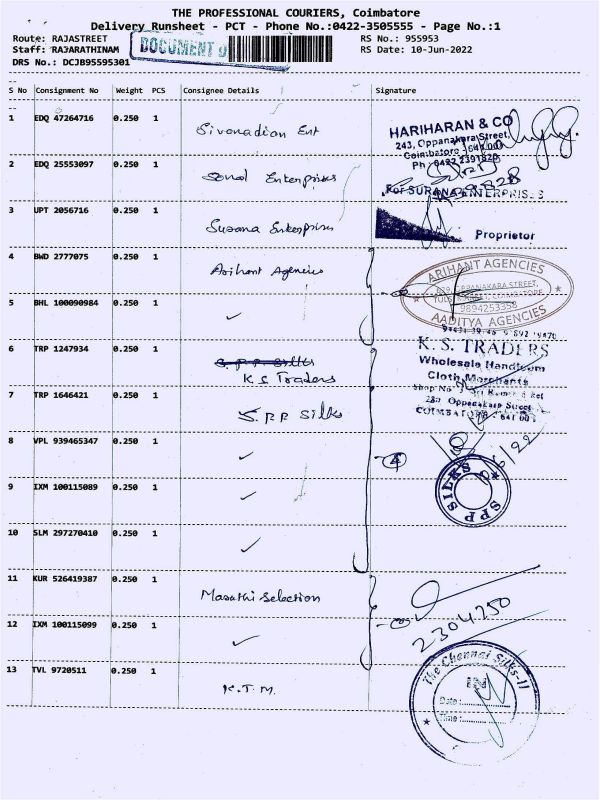 THE PROFESSIONAL COURIERS, Coimbatore
Delivery Runsheet - PCT - Phone No.:0422-3505555 - Page No.:1
Route: RAJASTREET
Staff: RAJARATHINAM
DRS No.: DCJB95595301
DOCUMENT
RS No.: 955953
RS Date: 10-Jun-2022
S No Consignment No Weight PCS Consignee Details Signature
1 EDQ 47264716 0.250 1 Sivanadian Ent
HARIHARAN & CO
243, Oppanakara Street,
Coimbatore - 641 001
Ph : 0422 2391820
2 EDQ 25553097 0.250 1 Sonal Enterprises
For SURANA ENTERPRISES
3 UPT 2056716 0.250 1 Surana Enterprises
Proprietor
4 BWD 2777075 0.250 1 Arihant Agencies
ARIHANT AGENCIES
OPPANAKARA STREET,
COIMBATORE
9894253358
AADITYA AGENCIES
5 BHL 100090984 0.250 1 ✓
6 TRP 1247934 0.250 1 S.P.P Silks
K.S Traders
K. S. TRADERS
Wholesale Handloom
Cloth Merchants
Shop No
Oppanakara Street
COIMBATORE - 641 001
7 TRP 1646421 0.250 1 S.P.P Silks
8 VPL 939465347 0.250 1 ✓
4
SPP SILKS
9 IXM 100115089 0.250 1 ✓
10 SLM 297270410 0.250 1 ✓
11 KUR 526419387 0.250 1 Maruthi Selection
12 IXM 100115099 0.250 1 ✓
2304750
13 TVL 9720511 0.250 1 K.T.M.
The Chennai Silks-II
IN
Date :
Time :